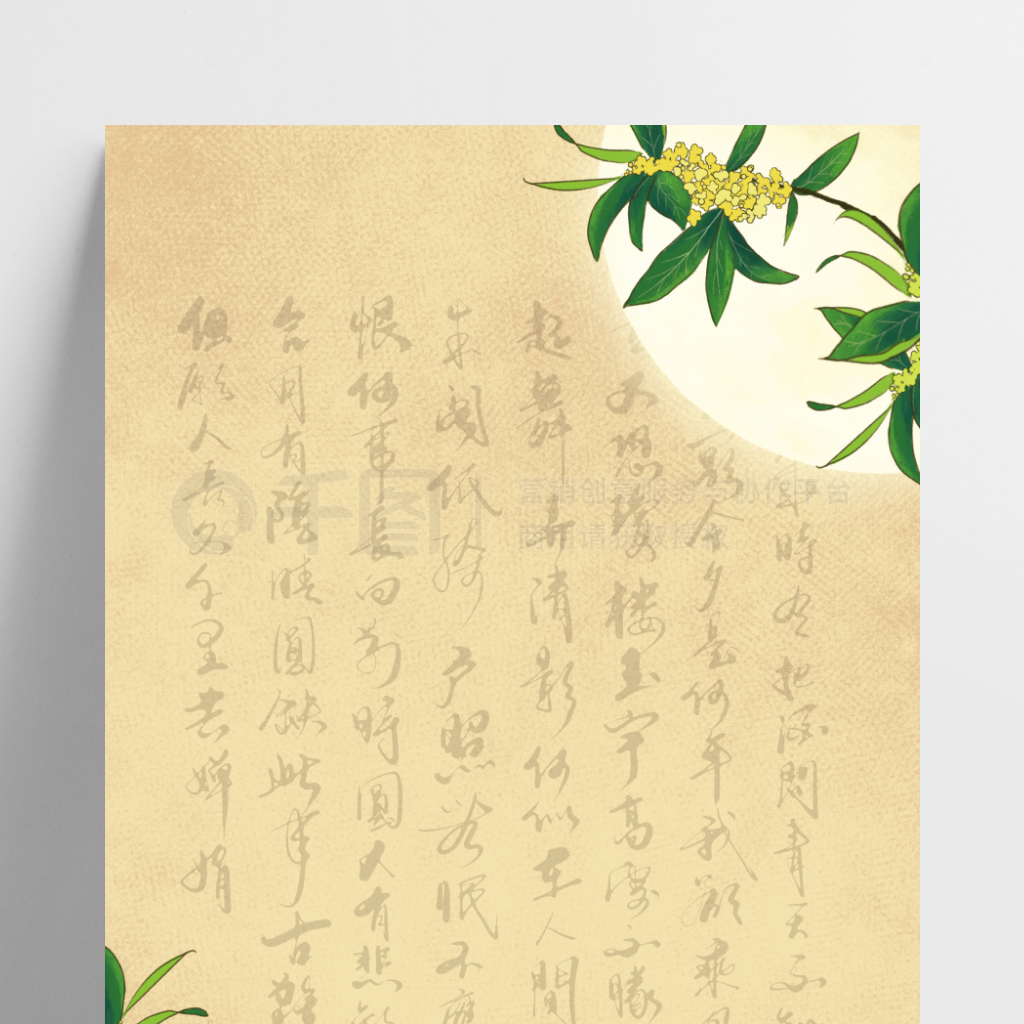 時有把酒問青天不知
今夕是何年我欲乘
又恐瓊樓玉宇高處不勝
起舞弄清影何似在人間
朱閣低綺戶照無眠不應
恨何事長向別時圓人有悲歡
合月有陰晴圓缺此事古難
但願人長久千里共嬋娟
千图
营销创意服务与协作平台
商用请获取授权